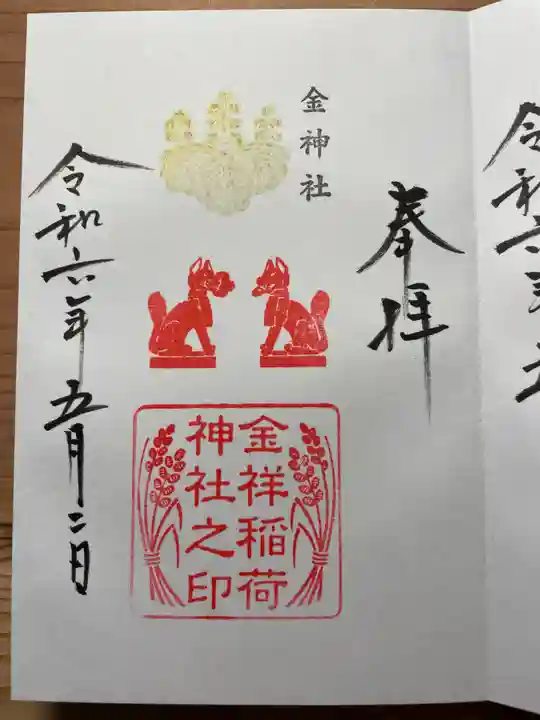 令和六年五
奉拝
金神社
金祥稲荷
神社之印
令和六年五月二日